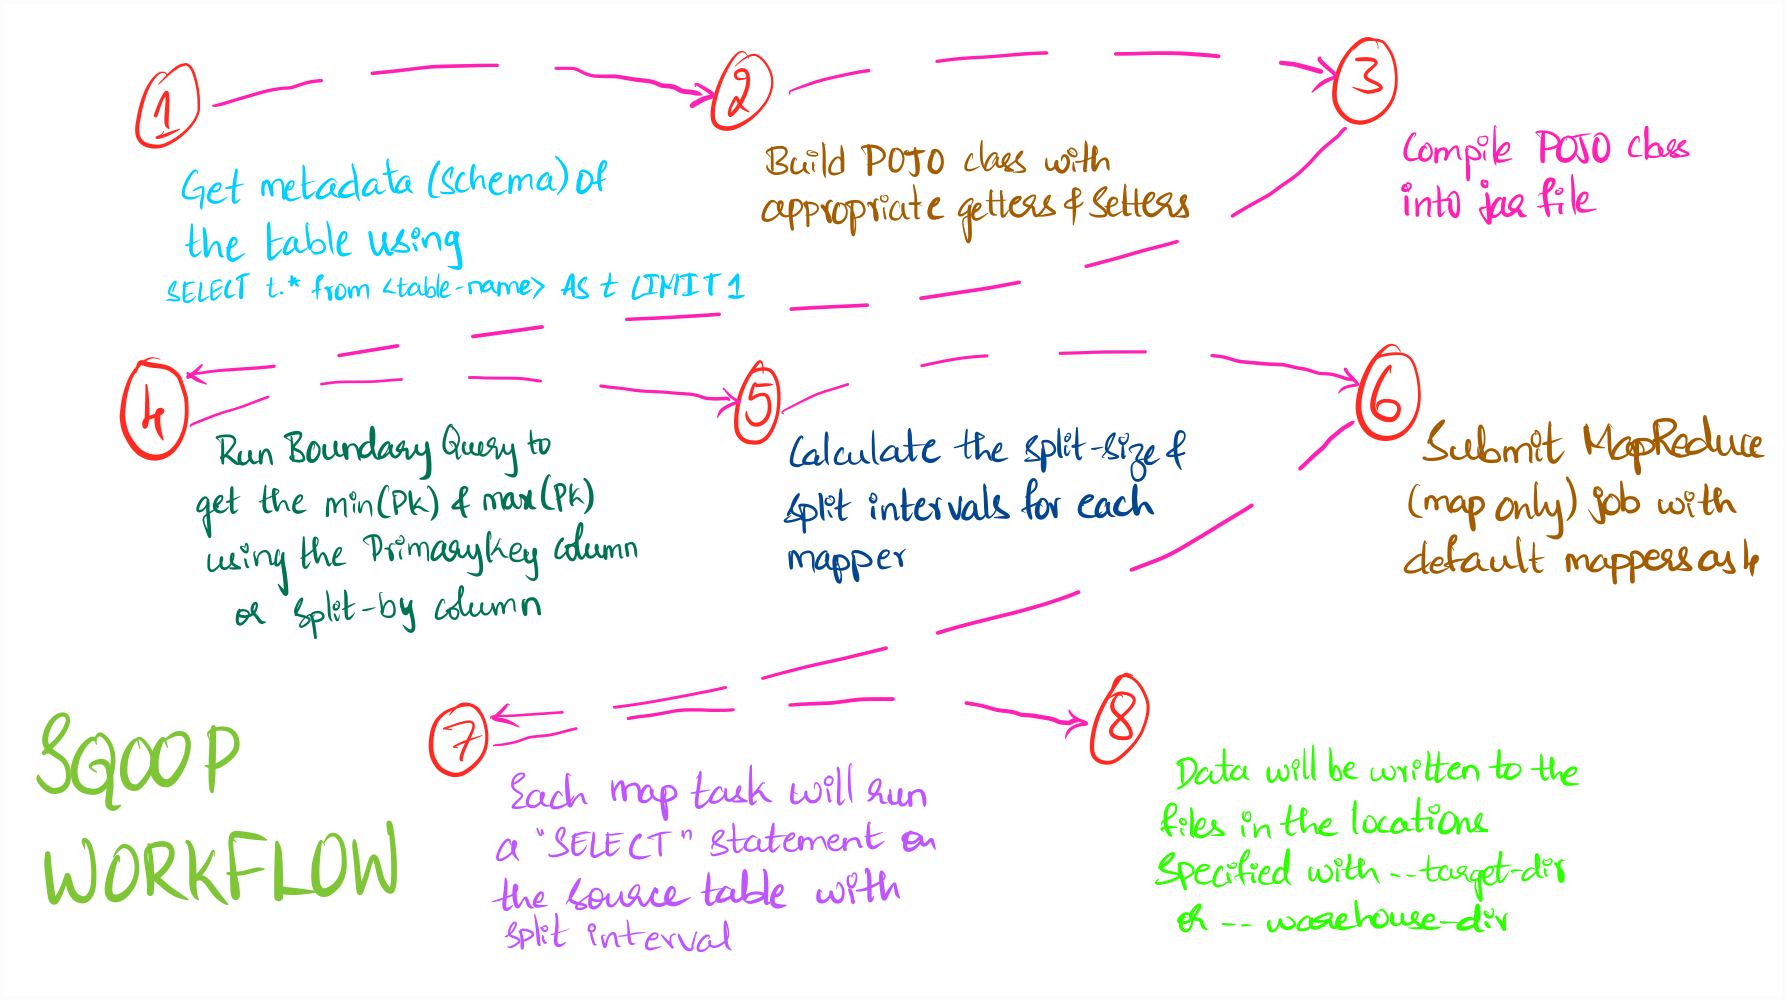 1
Get metadata (schema) of
the table using
SELECT t.* from <table-name> AS t LIMIT 1
2
Build POJO class with
appropriate getters & setters
3
Compile POJO class
into jar file
4
Run Boundary Query to
get the min(PK) & max(PK)
using the Primarykey column
or split-by column
5
Calculate the split-size &
split intervals for each
mapper
6
Submit MapReduce
(map only) job with
default mappers as 4
7
Each map task will run
a "SELECT" statement on
the source table with
split interval
8
Data will be written to the
files in the locations
specified with --target-dir
or -- warehouse-dir
SQOOP
WORKFLOW